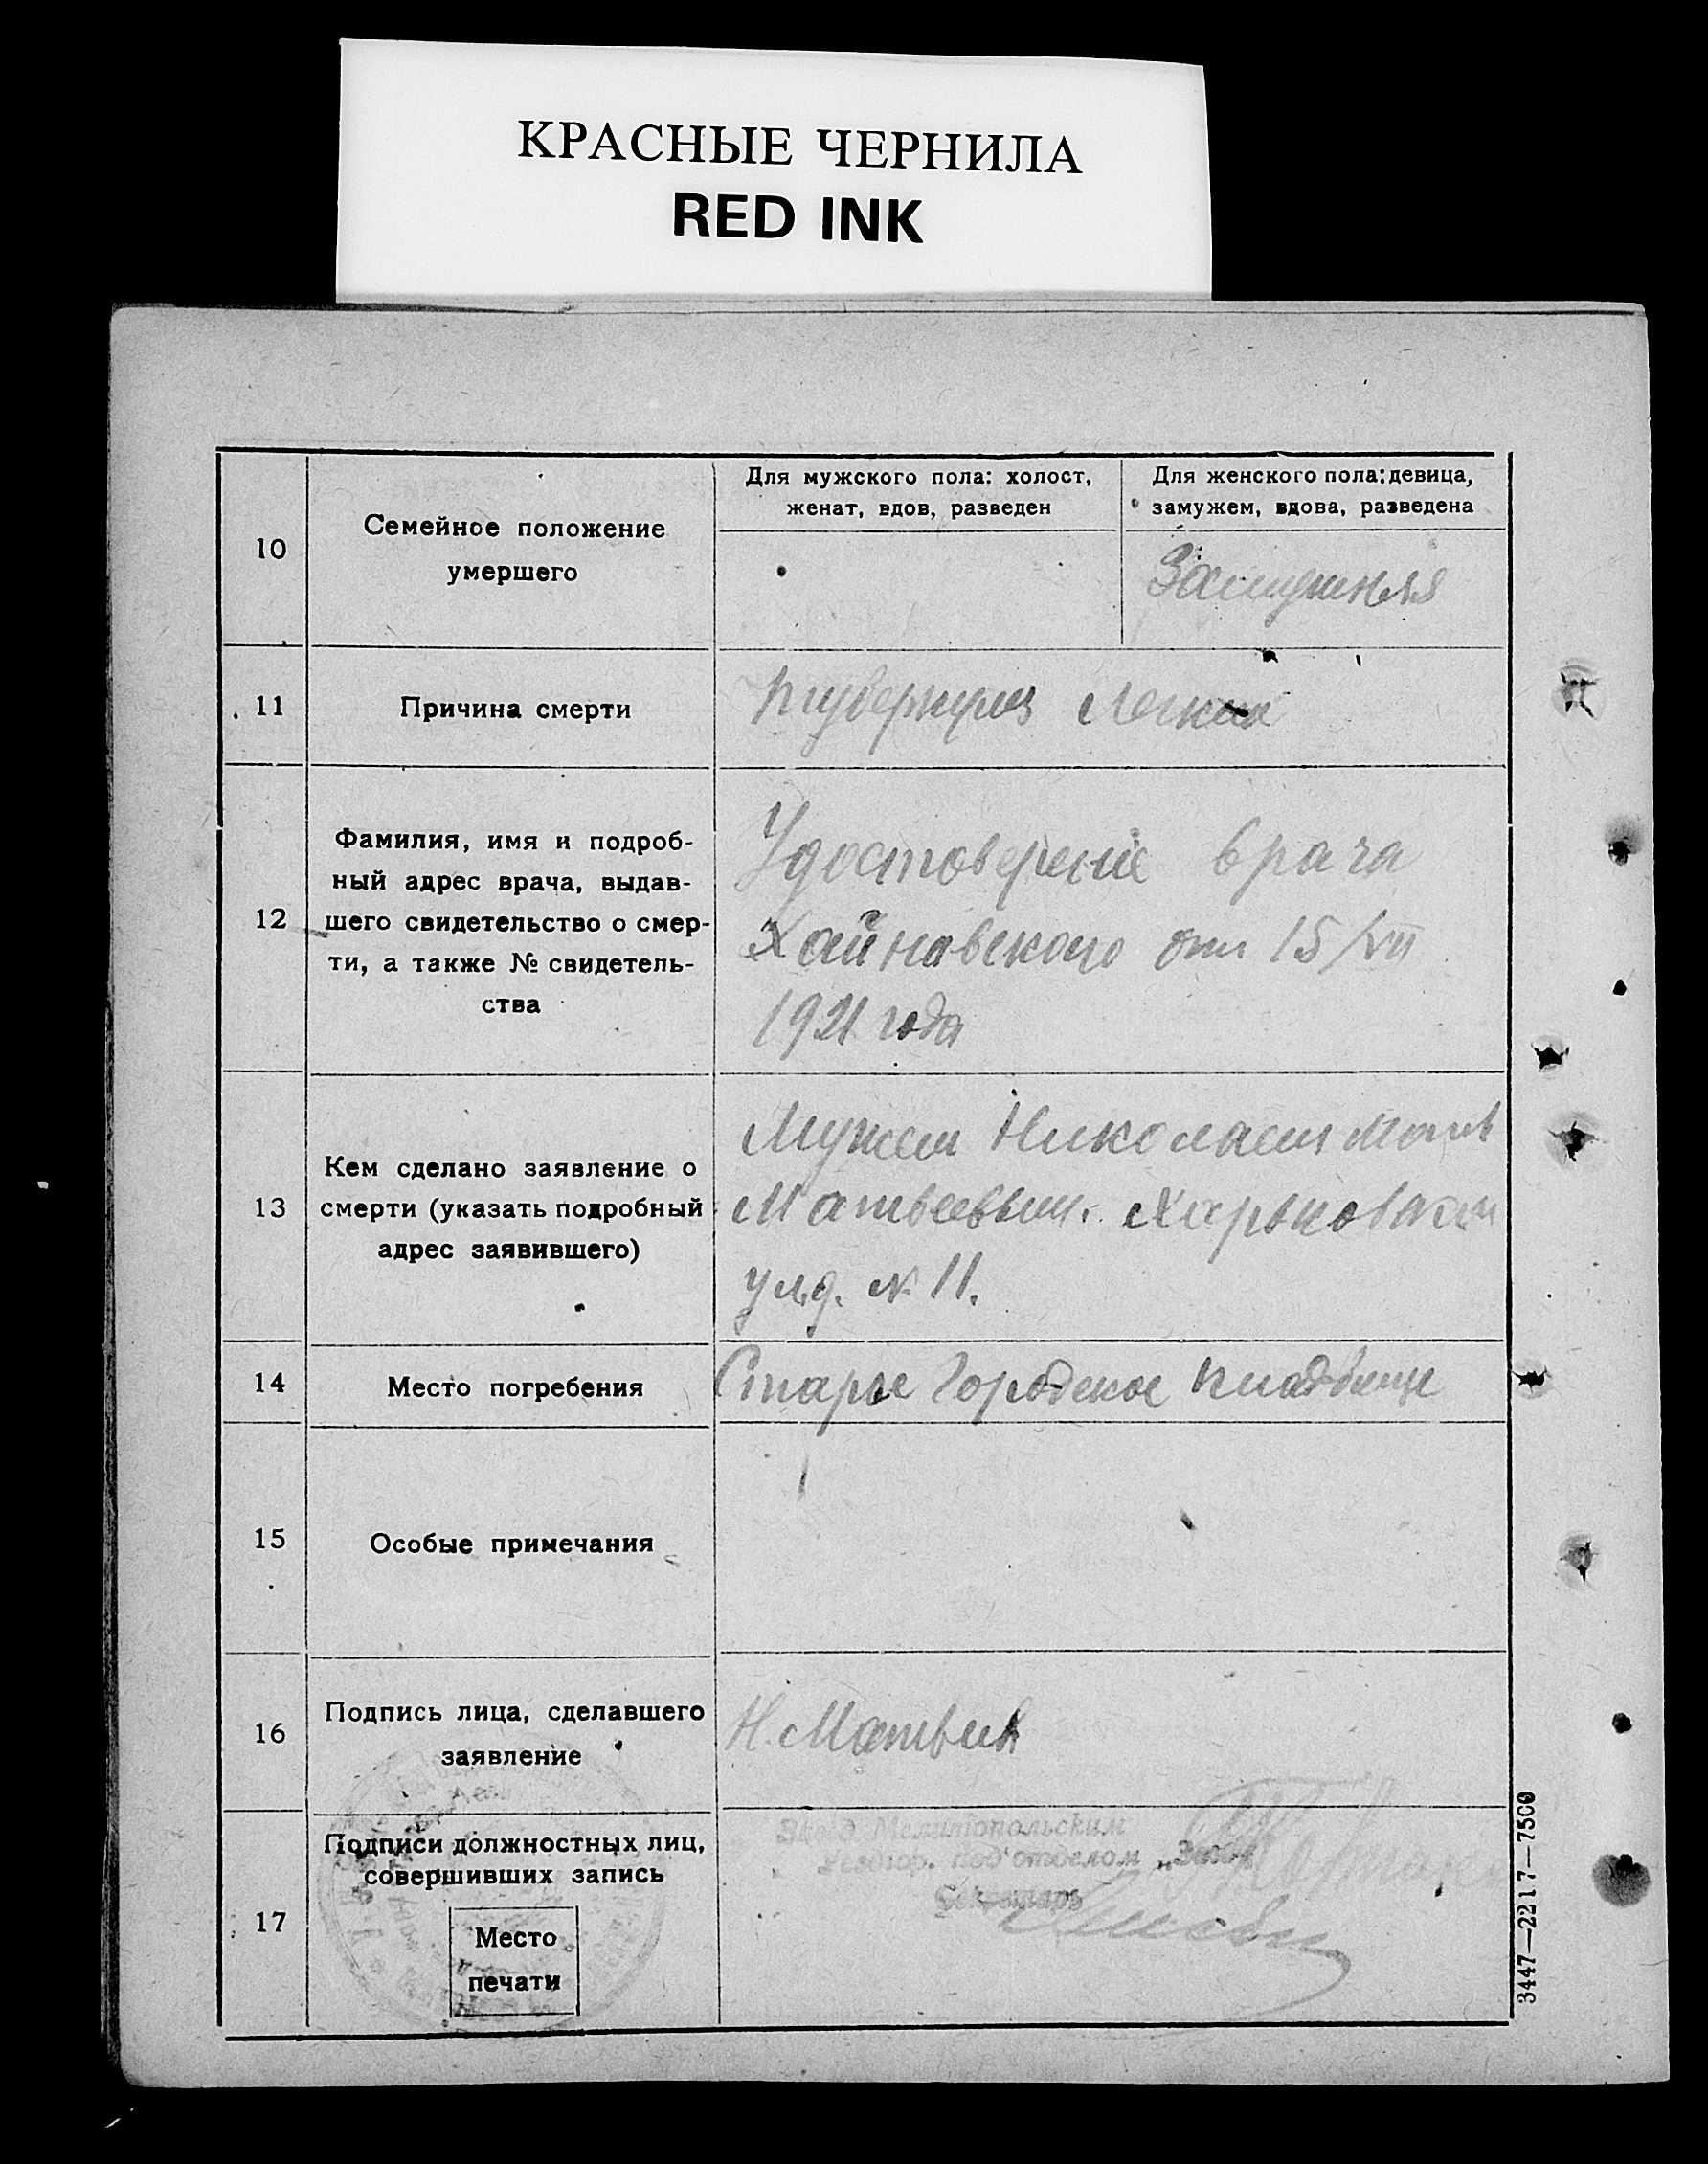 КРАСНЫЕ ЧЕРНИЛА
RED INK
10
Семейное положение
умершего
Для мужского пола: холост,
женат, вдов, разведен
Для женского пола: девица,
замужем, вдова, разведена
Замужняя
11
Причина смерти
туберкулез Легких
12
Фамилия, имя и подроб-
ный адрес врача, выдав-
шего свидетельство о смер-
ти, а также № свидетель-
ства
Удостоверение врача
Хайновского от 15/VII
1921 года
13
Кем сделано заявление о
смерти (указать подробный
адрес заявившего)
Мужем Николаем
Матвеевым. Харьковская
ул. д. № 11.
14
Место погребения
Старое Городское кладбище
15
Особые примечания
16
Подпись лица, сделавшего
заявление
Н. Матвеев
17
Подписи должностных лиц,
совершивших запись
Место
печати
Зав. Мелитопольским
под'отделом
Секретарь
3447—2217—7500